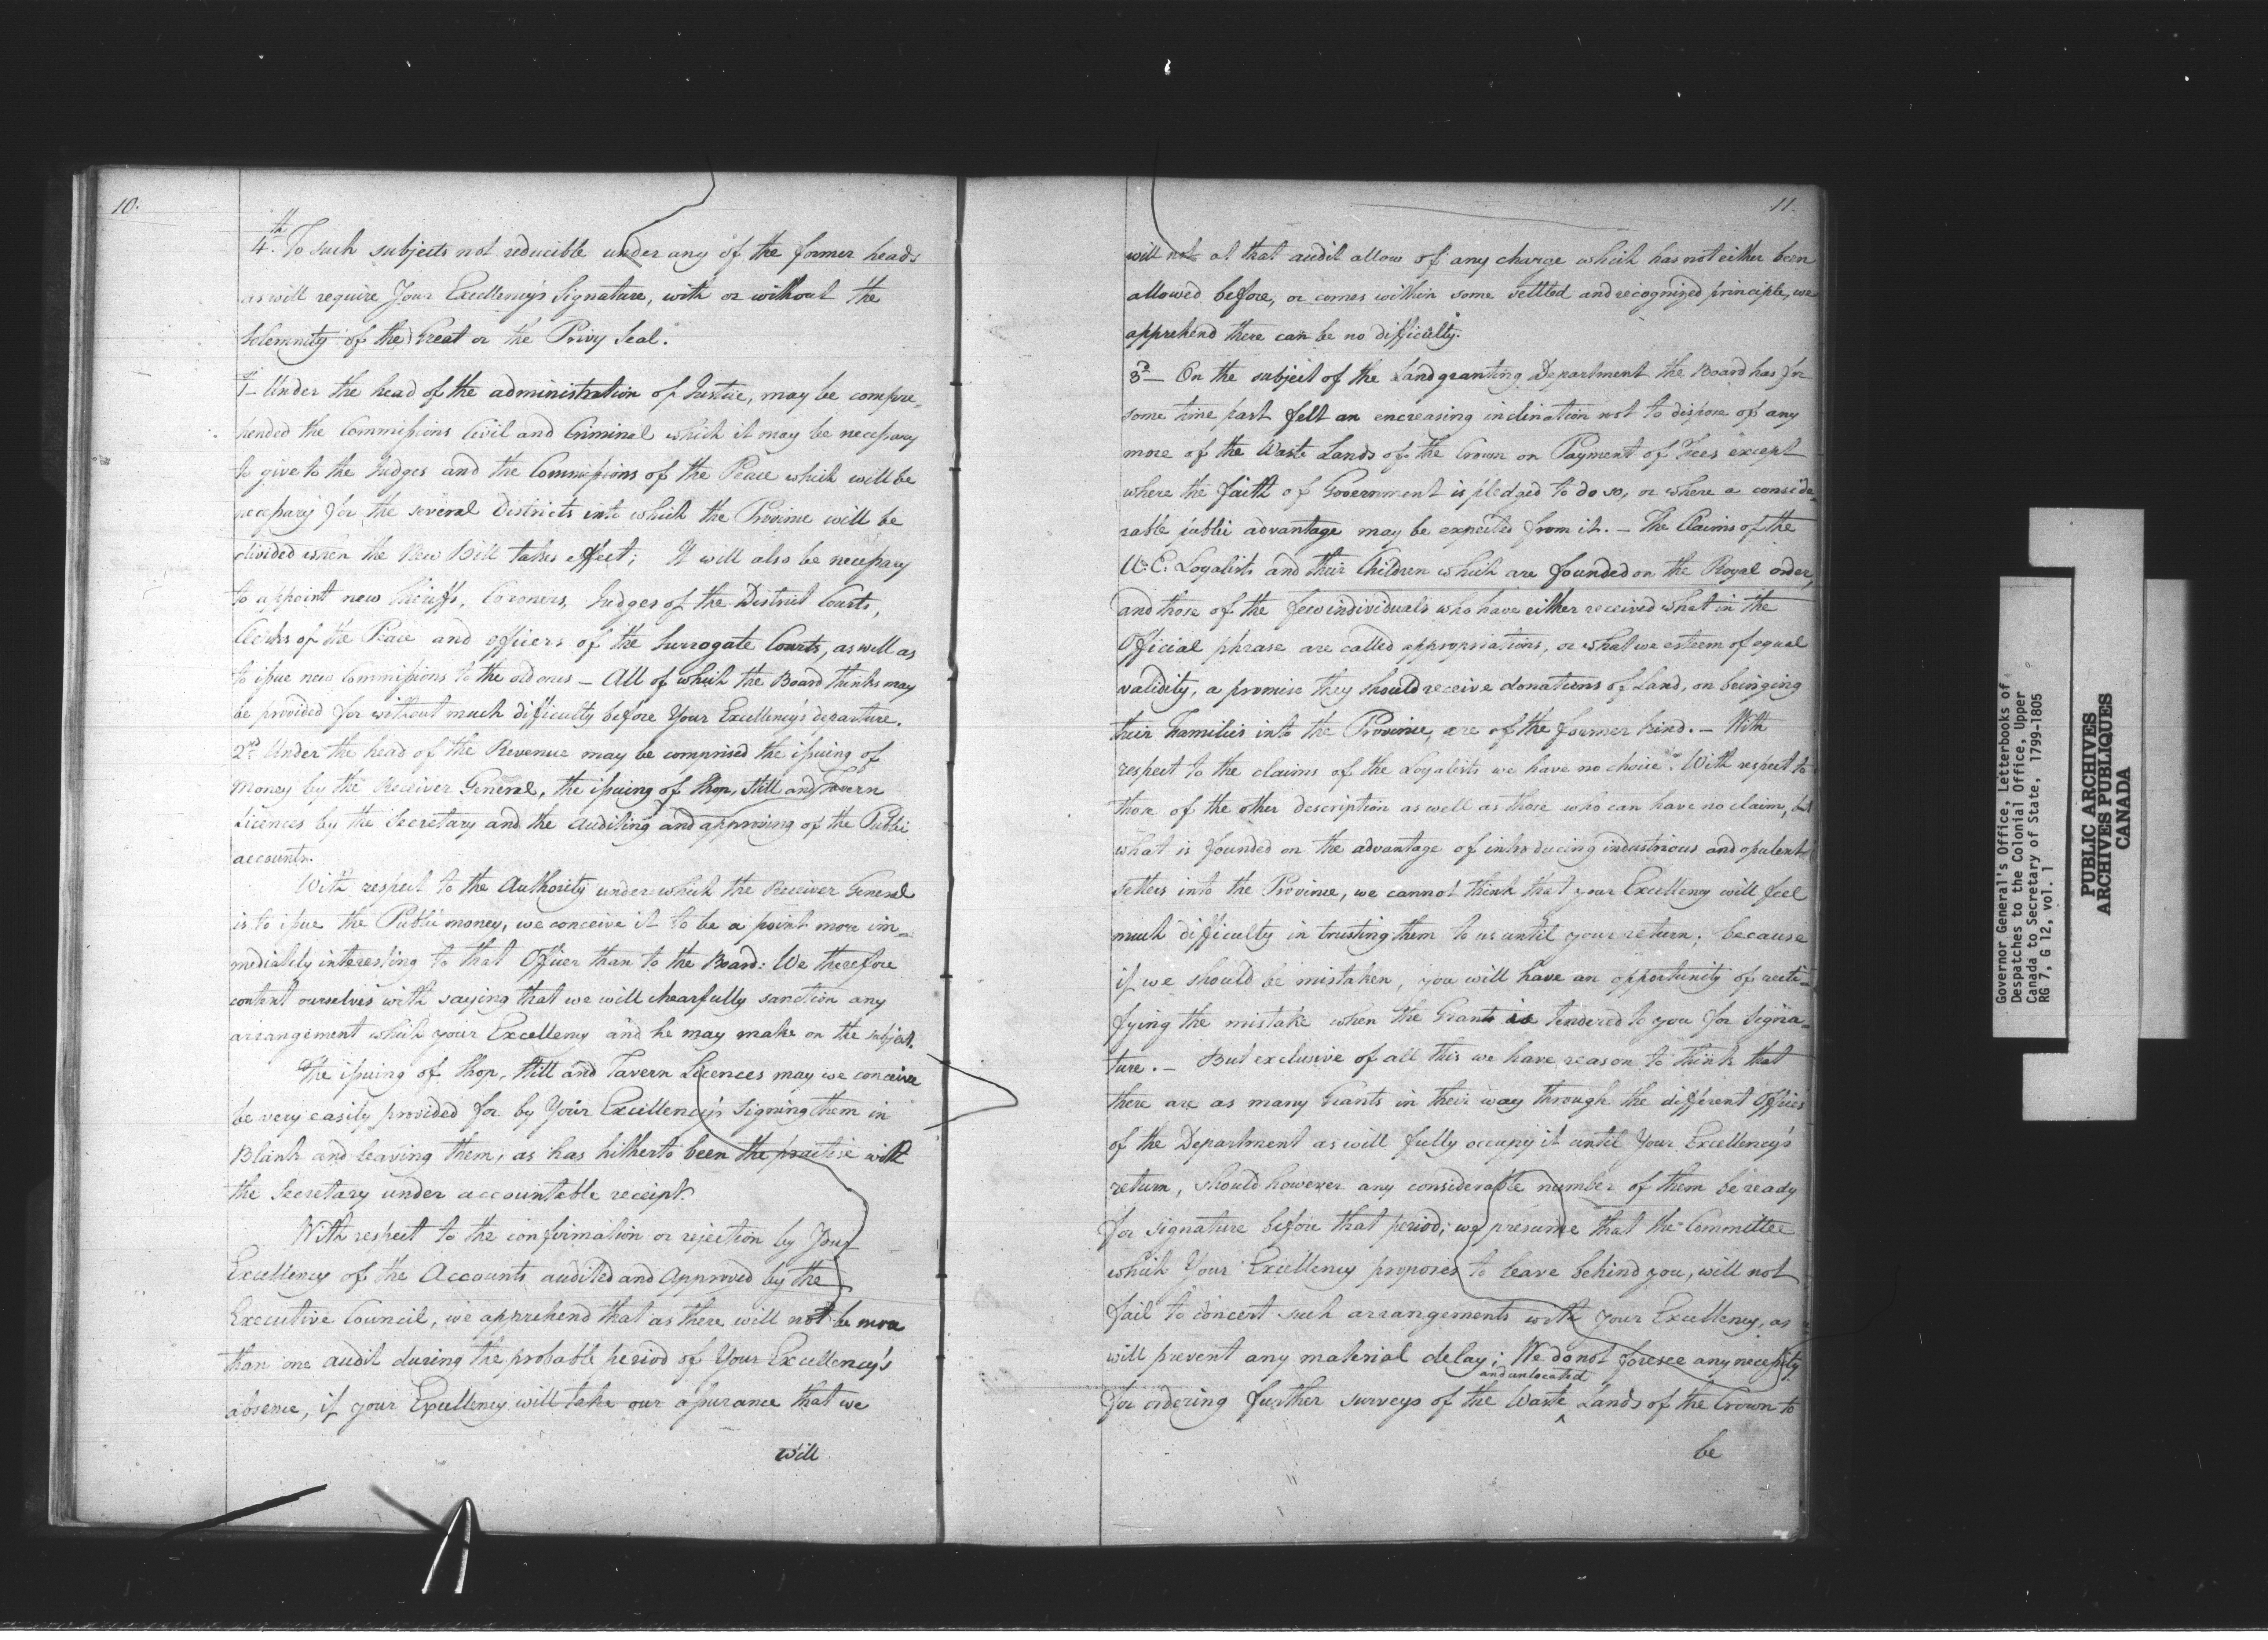 10.
4th. To such subjects not reducible under any of the former heads
as will require Your Excellency's Signature, with or without the
Solemnity of the Great or the Privy Seal.
1st Under the head of the administration of Justice, may be compre=
hended the Commissions Civil and Criminal which it may be necessary
to give to the Judges and the Commissions of the Peace which will be
necessary for the several Districts into which the Province will be
divided when the New Bill takes effect; It will also be necessary
to appoint new Sheriffs, Coroners, Judges of the District Courts,
Clerks of the Peace and officers of the Surrogate Courts, as well as
to issue new Commissions to the old ones – All of which the Board thinks may
be provided for without much difficulty before Your Excellency's departure.
2nd. Under the head of the Revenue may be comprised the issuing of
Money by the Receiver General, the issuing of Shop, Still and Tavern
Licences by the Secretary and the Auditing and approving of the Public
accounts.
With respect to the Authority under which the Receiver General
is to issue the Public money, we conceive it to be a point more im=
mediately interesting to that Officer than to the Board: We therefore
content ourselves with saying that we will chearfully sanction any
arrangement which your Excellency and he may make on the subject.
The issuing of Shop, Still and Tavern Licences may we conceive
be very easily provided for by Your Excellency's Signing them in
Blank and leaving them, as has hitherto been the practise with
the Secretary under accountable receipt.
With respect to the confirmation or rejection by Your
Excellency of the Accounts audited and Approved by the
Executive Council, we apprehend that as there will not be more
than one audit during the probable period of Your Excellency's
absence, if your Excellency will take our assurance that we
will
11.
will not at that audit allow of any charge which has not either been
allowed before, or comes within some settled and recognized principle, we
apprehend there can be no difficulty.
3d – On the subject of the Land granting Department the Board has for
some time past felt an encreasing inclination not to dispose of any
more of the Waste Lands of the Crown on Payment of Fees except
where the faith of Government is pledged to do so, or where a conside=
rable public advantage may be expected from it. – The Claims of the
U. E. Loyalists and their Children which are founded on the Royal order,
and those of the few individuals who have either received what in the
Official phrase are called appropriations, or what we esteem of equal
validity, a promise they should receive donations of Land, on bringing
their Families into the Province, are of the former kind. – With
respect to the claims of the Loyalists we have no choice. With respect to
those of the other description as well as those who can have no claim, but
what is founded on the advantage of introducing industrious and opulent
Settlers into the Province, we cannot think that your Excellency will feel
much difficulty in trusting them to us until your return; because
if we should be mistaken, you will have an opportunity of recti=
fying the mistake when the Grant is tendered to you for Signa=
ture. – But exclusive of all this we have reason to think that
there are as many Grants in their way through the different Offices
of the Department as will fully occupy it until Your Excellency's
return, should however any considerable number of them be ready
for signature before that period; we presume that the Committee
which Your Excellency proposes to leave behind you, will not
fail to concert such arrangements with your Excellency, as
will prevent any material delay; We do not foresee any necessity
and unlocated
for ordering further surveys of the Waste ^ Lands of the Crown to
be
Governor General's Office, Letterbooks of
Despatches to the Colonial Office, Upper
Canada to Secretary of State, 1799-1805
RG 7, G 12, vol. 1
PUBLIC ARCHIVES
ARCHIVES PUBLIQUES
CANADA